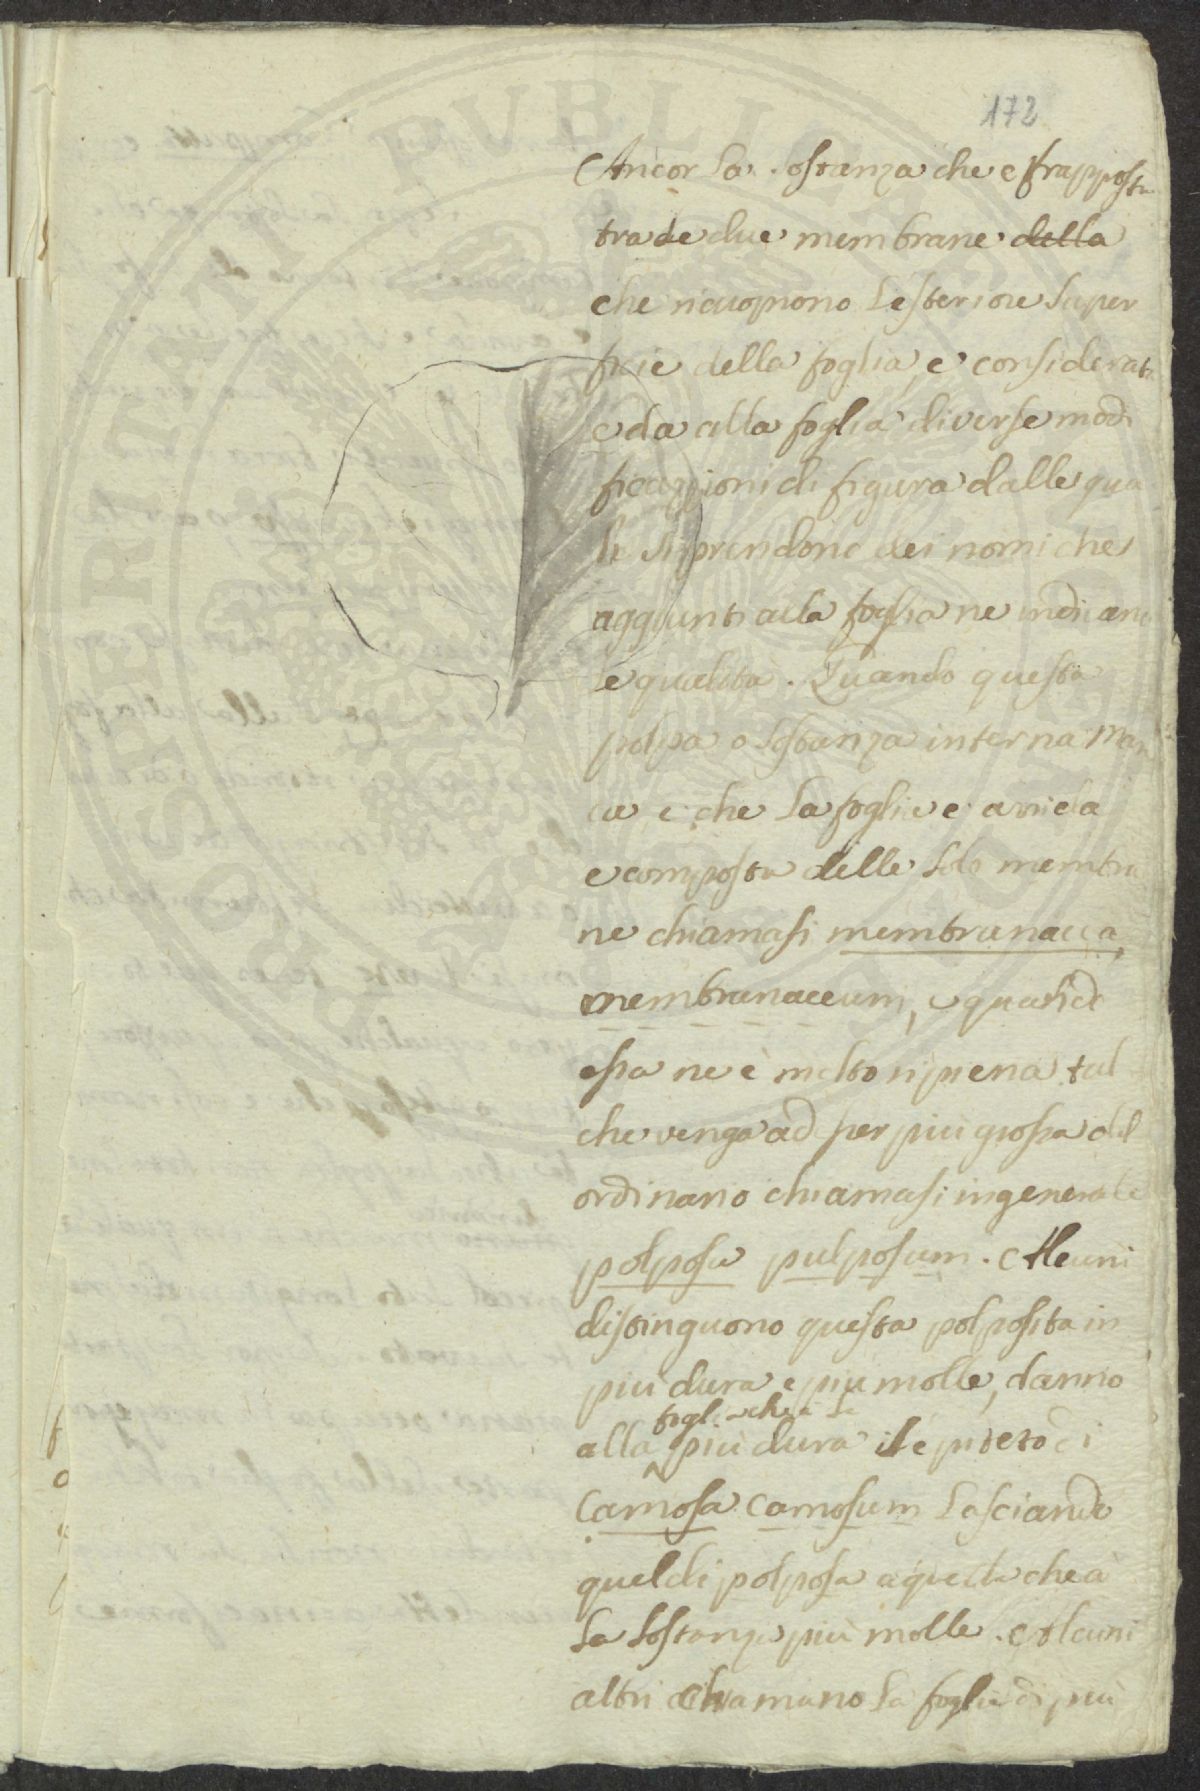 172
Ancor la sostanza che e frapposta
tra le due membrane della
che ricuoprono l'esteriore super
ficie della foglia, e considerata
e da alla foglia diverse modi
ficazzioni di figura dalle qua
li si prendono dei nomi che
aggiunti alla foglia ne indicano
le qualità. Quando questa
polpa o sostanza interna man
ca e che la foglia e arrida
e composta delle sole membra
ne chiamasi membranacea,
membranaceum, e quando
essa ne è molto ripiena tal
che venga ad per più grossa del
ordinario chiamasi in generale
polposa pulposum. Alcuni
distinguono questa polposita in
più dura e più molle, danno
foglia che à la
alla più dura il epiteto di
Carnosa carnosum lasciando
quel di polposa a quella che à
la sostanza più molle. Alcuni
altri chiamano la foglia di più